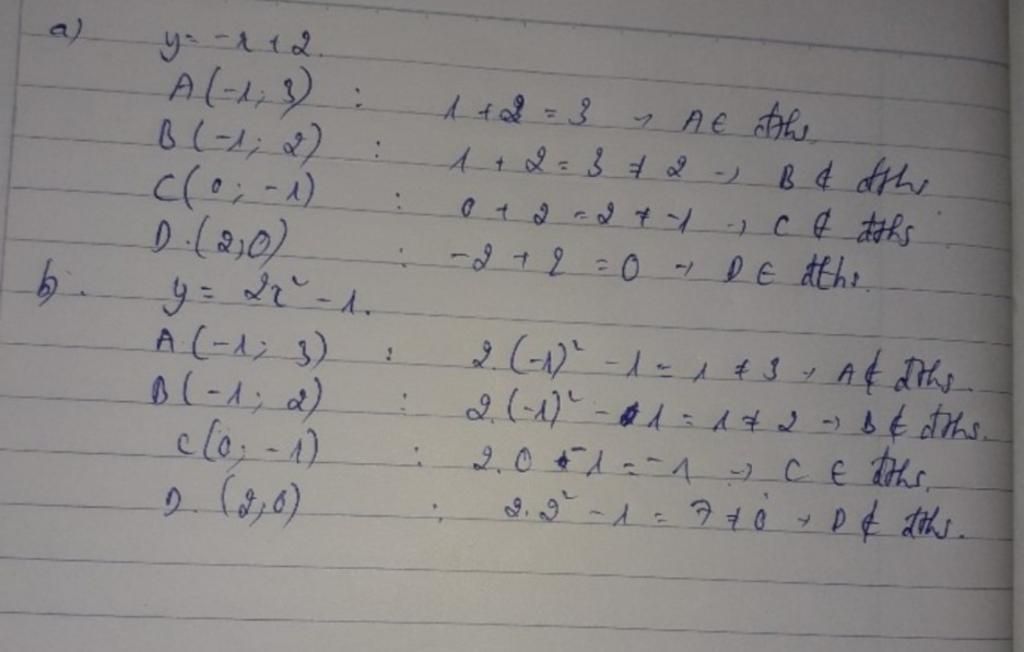 a) y = -x + 2.
A(-1; 3) : 1 + 2 = 3 → A ∈ đths.
B(-1; 2) : 1 + 2 = 3 ≠ 2 → B ∉ đths
C(0; -1) : 0 + 2 = 2 ≠ -1 → C ∉ đths
D.(2;0) : -2 + 2 = 0 → D ∈ đths.
b). y = 2x² - 1.
A.(-1; 3) : 2.(-1)² - 1 = 1 ≠ 3 → A ∉ đths
B(-1; 2) : 2.(-1)² - 1 = 1 ≠ 2 → B ∉ đths.
C(0; -1) : 2.0 - 1 = -1 → C ∈ đths.
D.(2;0) : 2.2² - 1 = 7 ≠ 0 → D ∉ đths.